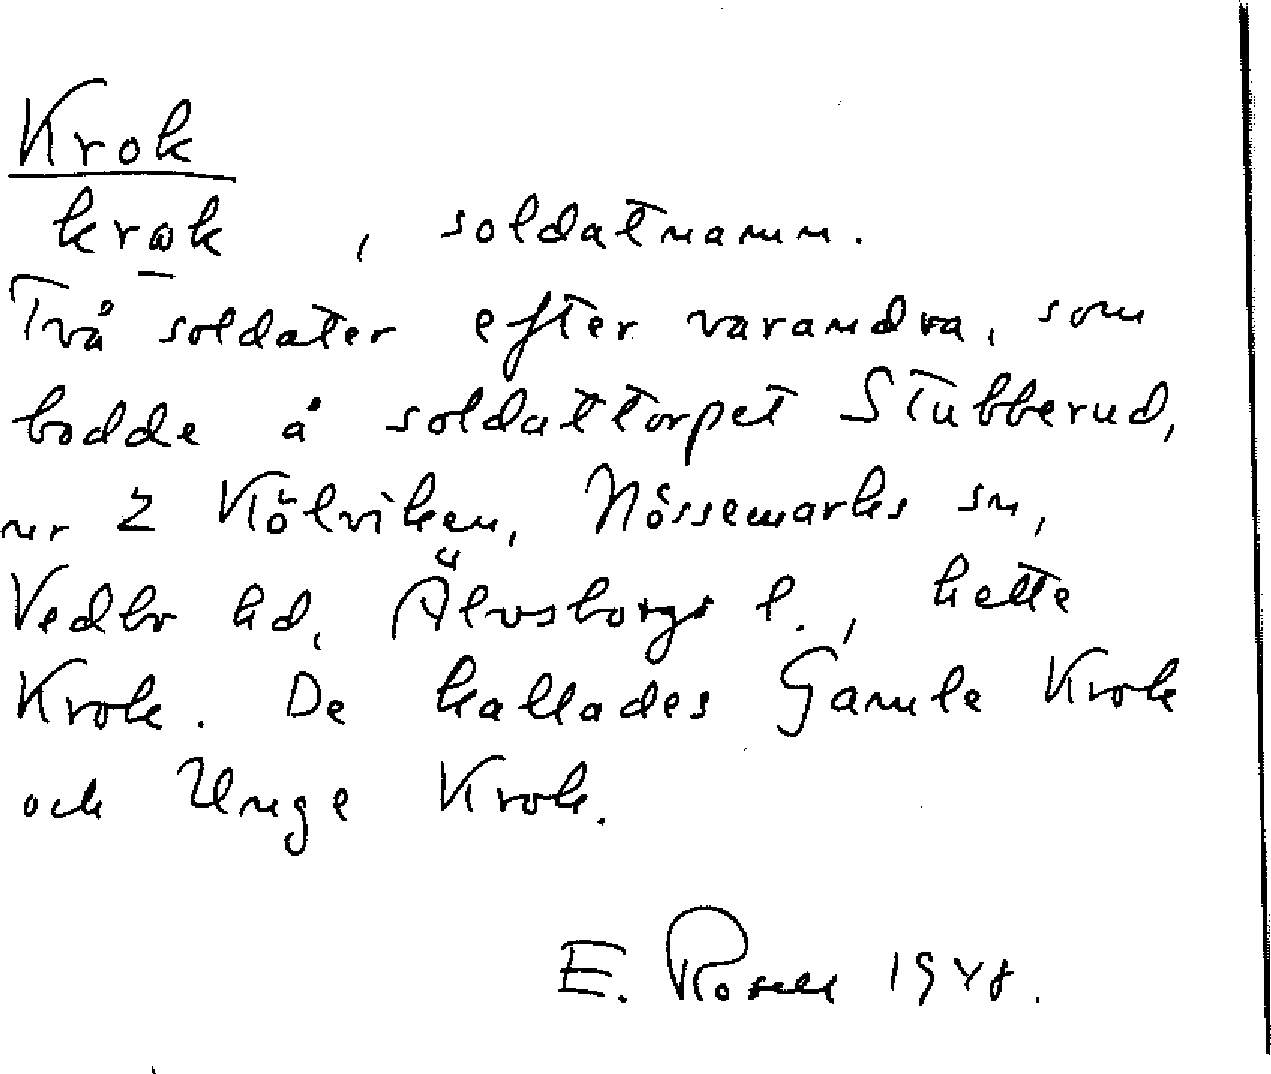 Krok
krok, soldatnamn.
Två soldater efter varandra, som
bodde å soldattorpet Stubberud,
nr 2 Kölviken, Nössemarks sn,
Vedbo hd, Älvsborgs l., hette
Krok. De kallades Gamle Krok
och Unge Krok.
E. Rosell 1948.